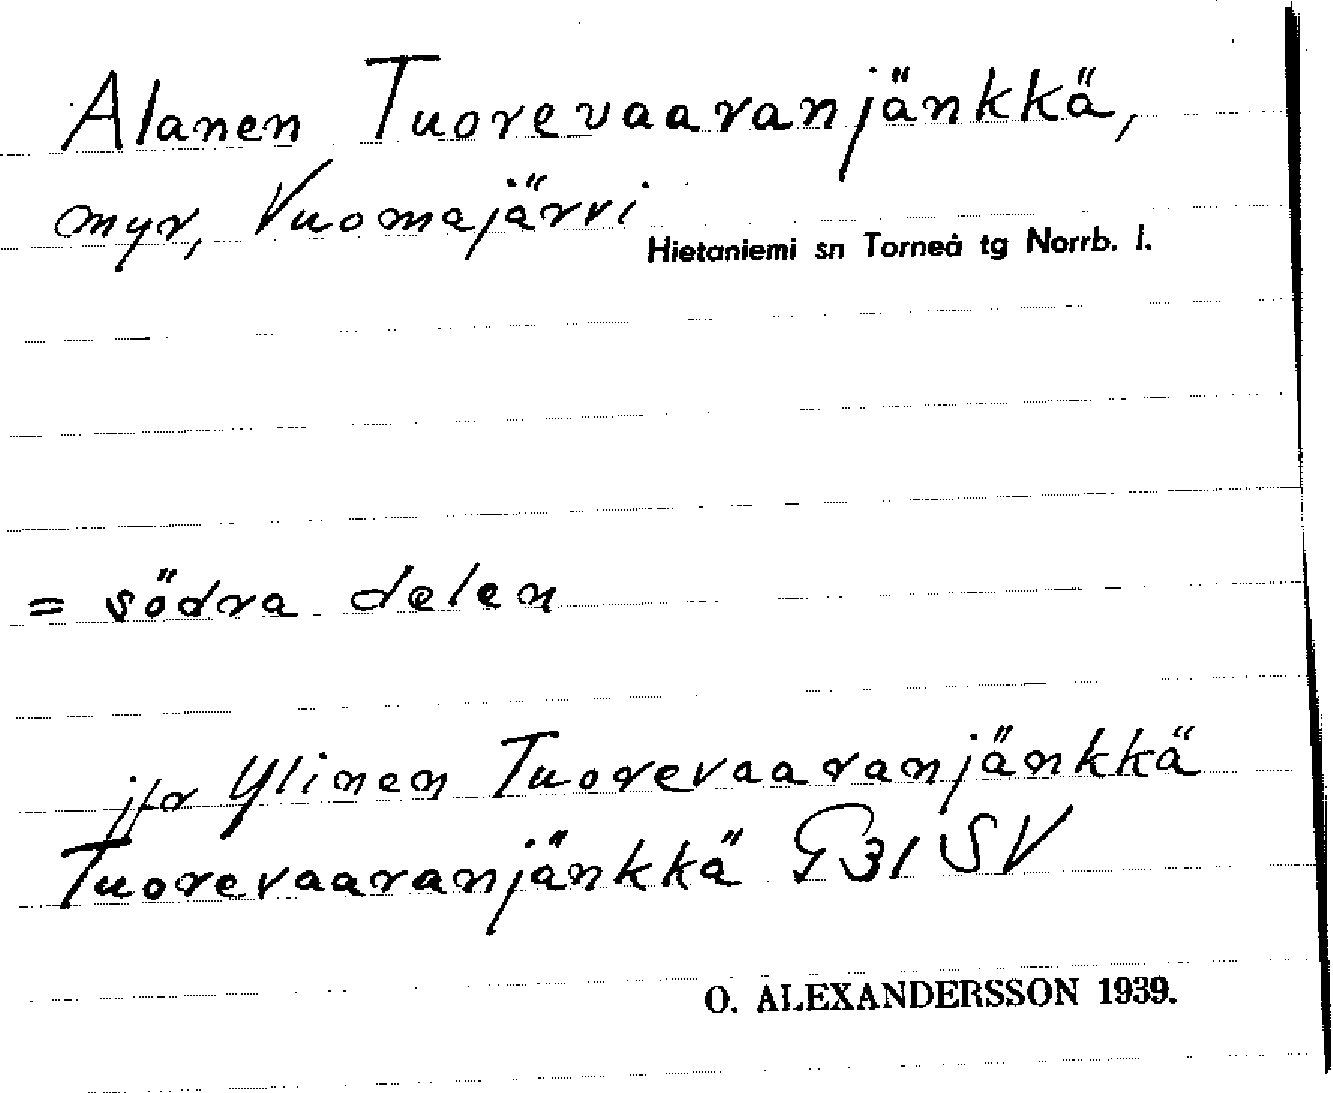 Alanen Tuorevaaranjänkkä,
myr, Vuomajärvi
Hietaniemi sn Torneå tg Norrb. l.
= södra delen
jfr Ylinen Tuorevaaranjänkkä
Tuorevaaranjänkkä G 31 SV
O. ALEXANDERSSON 1939.